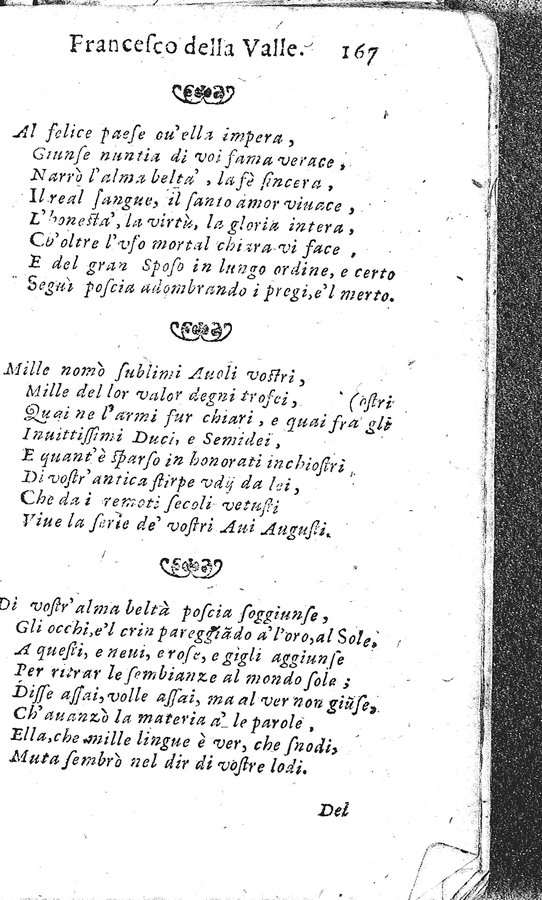 Francesco della Valle. 167
Al felice paese ou'ella impera,
Giunse nuntia di voi fama verace,
Narrò l'alma beltà, la fè sincera,
Il real sangue, il santo amor viuace,
L'honestà, la virtù, la gloria intera,
Co'oltre l'vso mortal chiara vi face,
E del gran Sposo in lungo ordine, e certo
Seguì poscia adombrando i pregi, e'l merto.
Mille nomò sublimi Auoli vostri,
Mille del lor valor degni trofei, (ostri
Quai ne l'armi fur chiari, e quai fra gli
Inuittissimi Duci, e Semidei,
E quant'è sparso in honorati inchiostri
Di vostr'antica stirpe vdij da lei,
Che da i remoti secoli vetusti
Viue la serie de' vostri Aui Augusti.
Di vostr'alma beltà poscia soggiunse,
Gli occhi, e'l crin pareggiādo a l'oro, al Sole,
A questi, e neui, e rose, e gigli aggiunse
Per ritrar le sembianze al mondo sole;
Disse assai, volle assai, ma al ver non giūse,
Ch'auanzò la materia a le parole,
Ella, che mille lingue è ver, che snodi,
Muta sembrò nel dir di vostre lodi.
Del